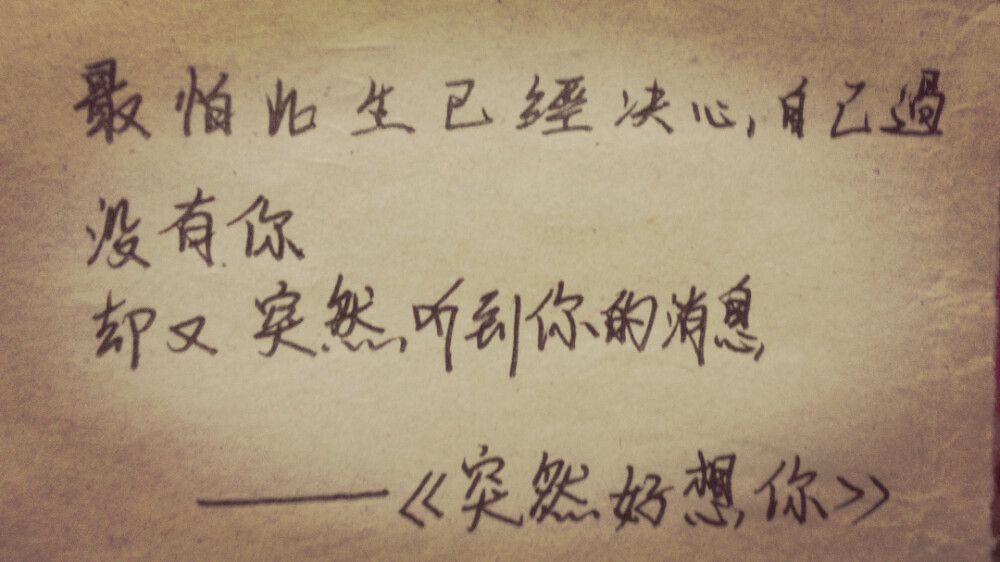 最怕此生已經决心,自己過
没有你
却又突然听到你的消息
——《突然好想你》